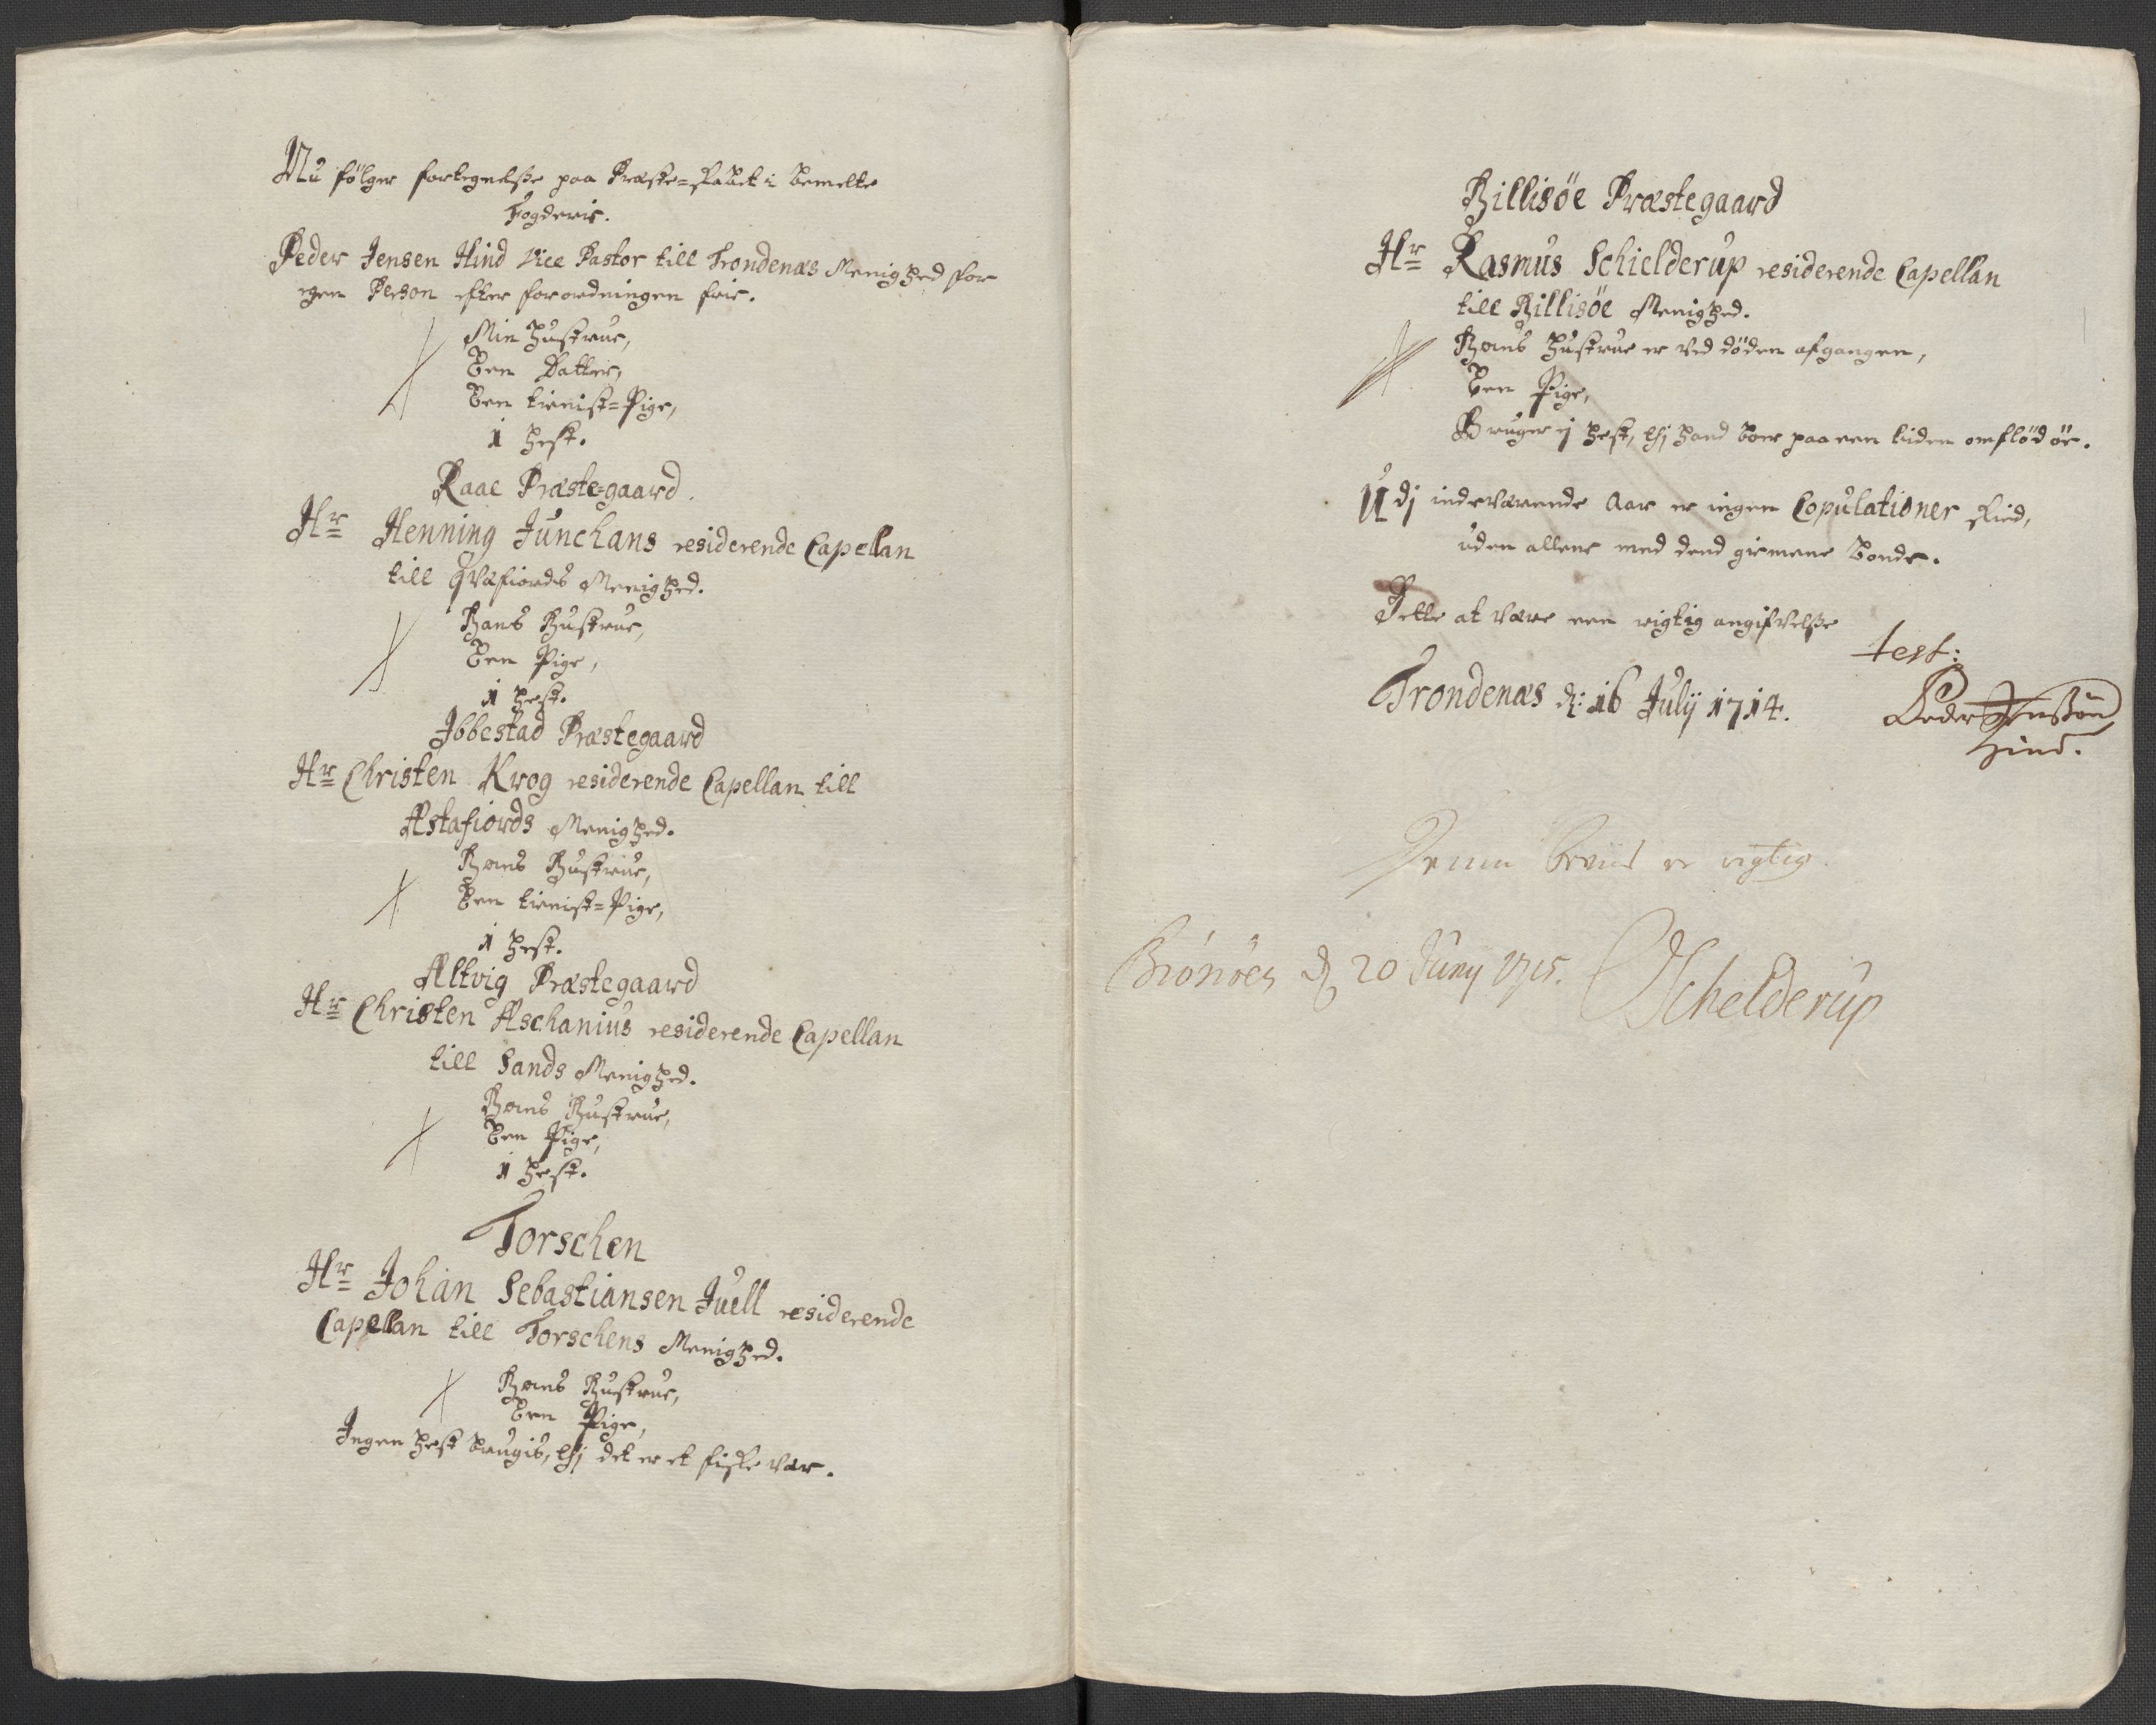 Nu følger fortegnelsse paa Præste-skabet i bemelte
Fogderie.
Peder Jensen Hind Vice Pastor till Trondenæs Menighed for
egen Person efter forordningen frie.
Min Hustrue,
Een Datter,
Een tienist-Pige,
1 Hest.
Raae Præste-gaard.
Hr Henning Junchans residerende Capellan
till Qvæfiords Menighed.
Hans Hustrue,
Een Pige,
1 Hest.
Ibbestad Præstegaard
Hr Christen Krog residerende Capellan till
Astafiords Menighed.
Hans Hustrue,
Een tienist-Pige,
1 Hest.
Altvig Præstegaard
Hr Christen Aschanius residerende Capellan
till Sands Menighed.
Hans Hustrue,
Een Pige,
1 Hest.
Torschen
Hr Johan Sebastiansen Juell residerende
Capellan till Torschens Menighed.
Hans Hustrue,
Een Pige,
Ingen Hest brugis, thj det er et fiske vær.
Hillisöe Præstegaard
Hr Rasmus Schielderup residerende Capellan
till Hillisöe Menighed.
Hans Hustrue er ved döden afgangen,
Een Pige,
Bruger ej Hest, thj hand boer paa een liden omflöd öe.
Udj indeværende Aar er ingen Copulationer skied,
uden allene med dend gemene bonde.
Dette at være een rigtig angifvelsse
test:
Trondenæs d: 16 Julij 1714.
Peder Jenssøn
Hind.
Denne beviis er rigtig.
Brönöen d 20 Junij 1715.
Schelderup